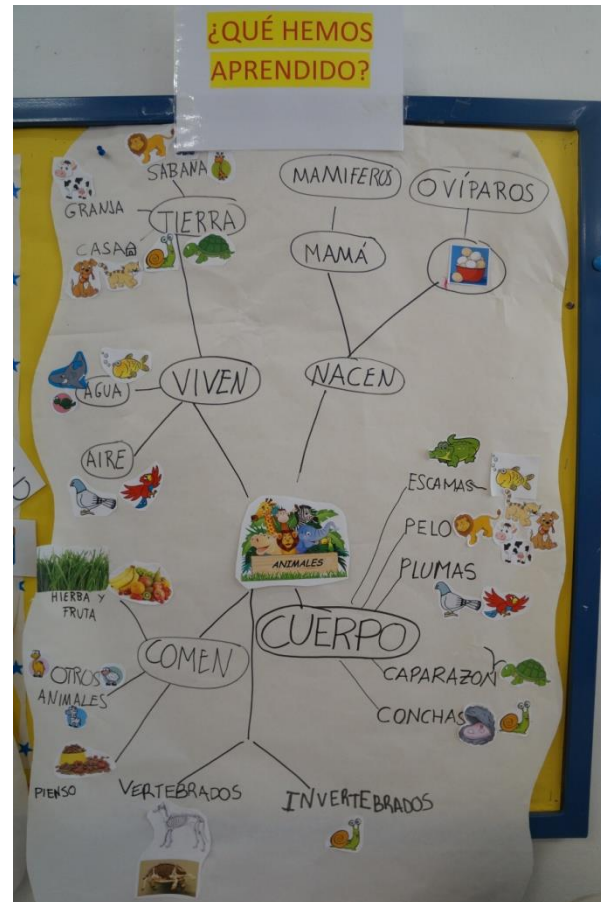 ¿QUÉ HEMOS
APRENDIDO?
SABANA
GRANJA
TIERRA
CASA
MAMIFEROS
OVÍPAROS
MAMÁ
AGUA
VIVEN
NACEN
AIRE
ESCAMAS
PELO
PLUMAS
ANIMALES
HIERBA Y
FRUTA
CUERPO
COMEN
OTROS
ANIMALES
CAPARAZON
CONCHAS
PIENSO
VERTEBRADOS
INVERTEBRADOS